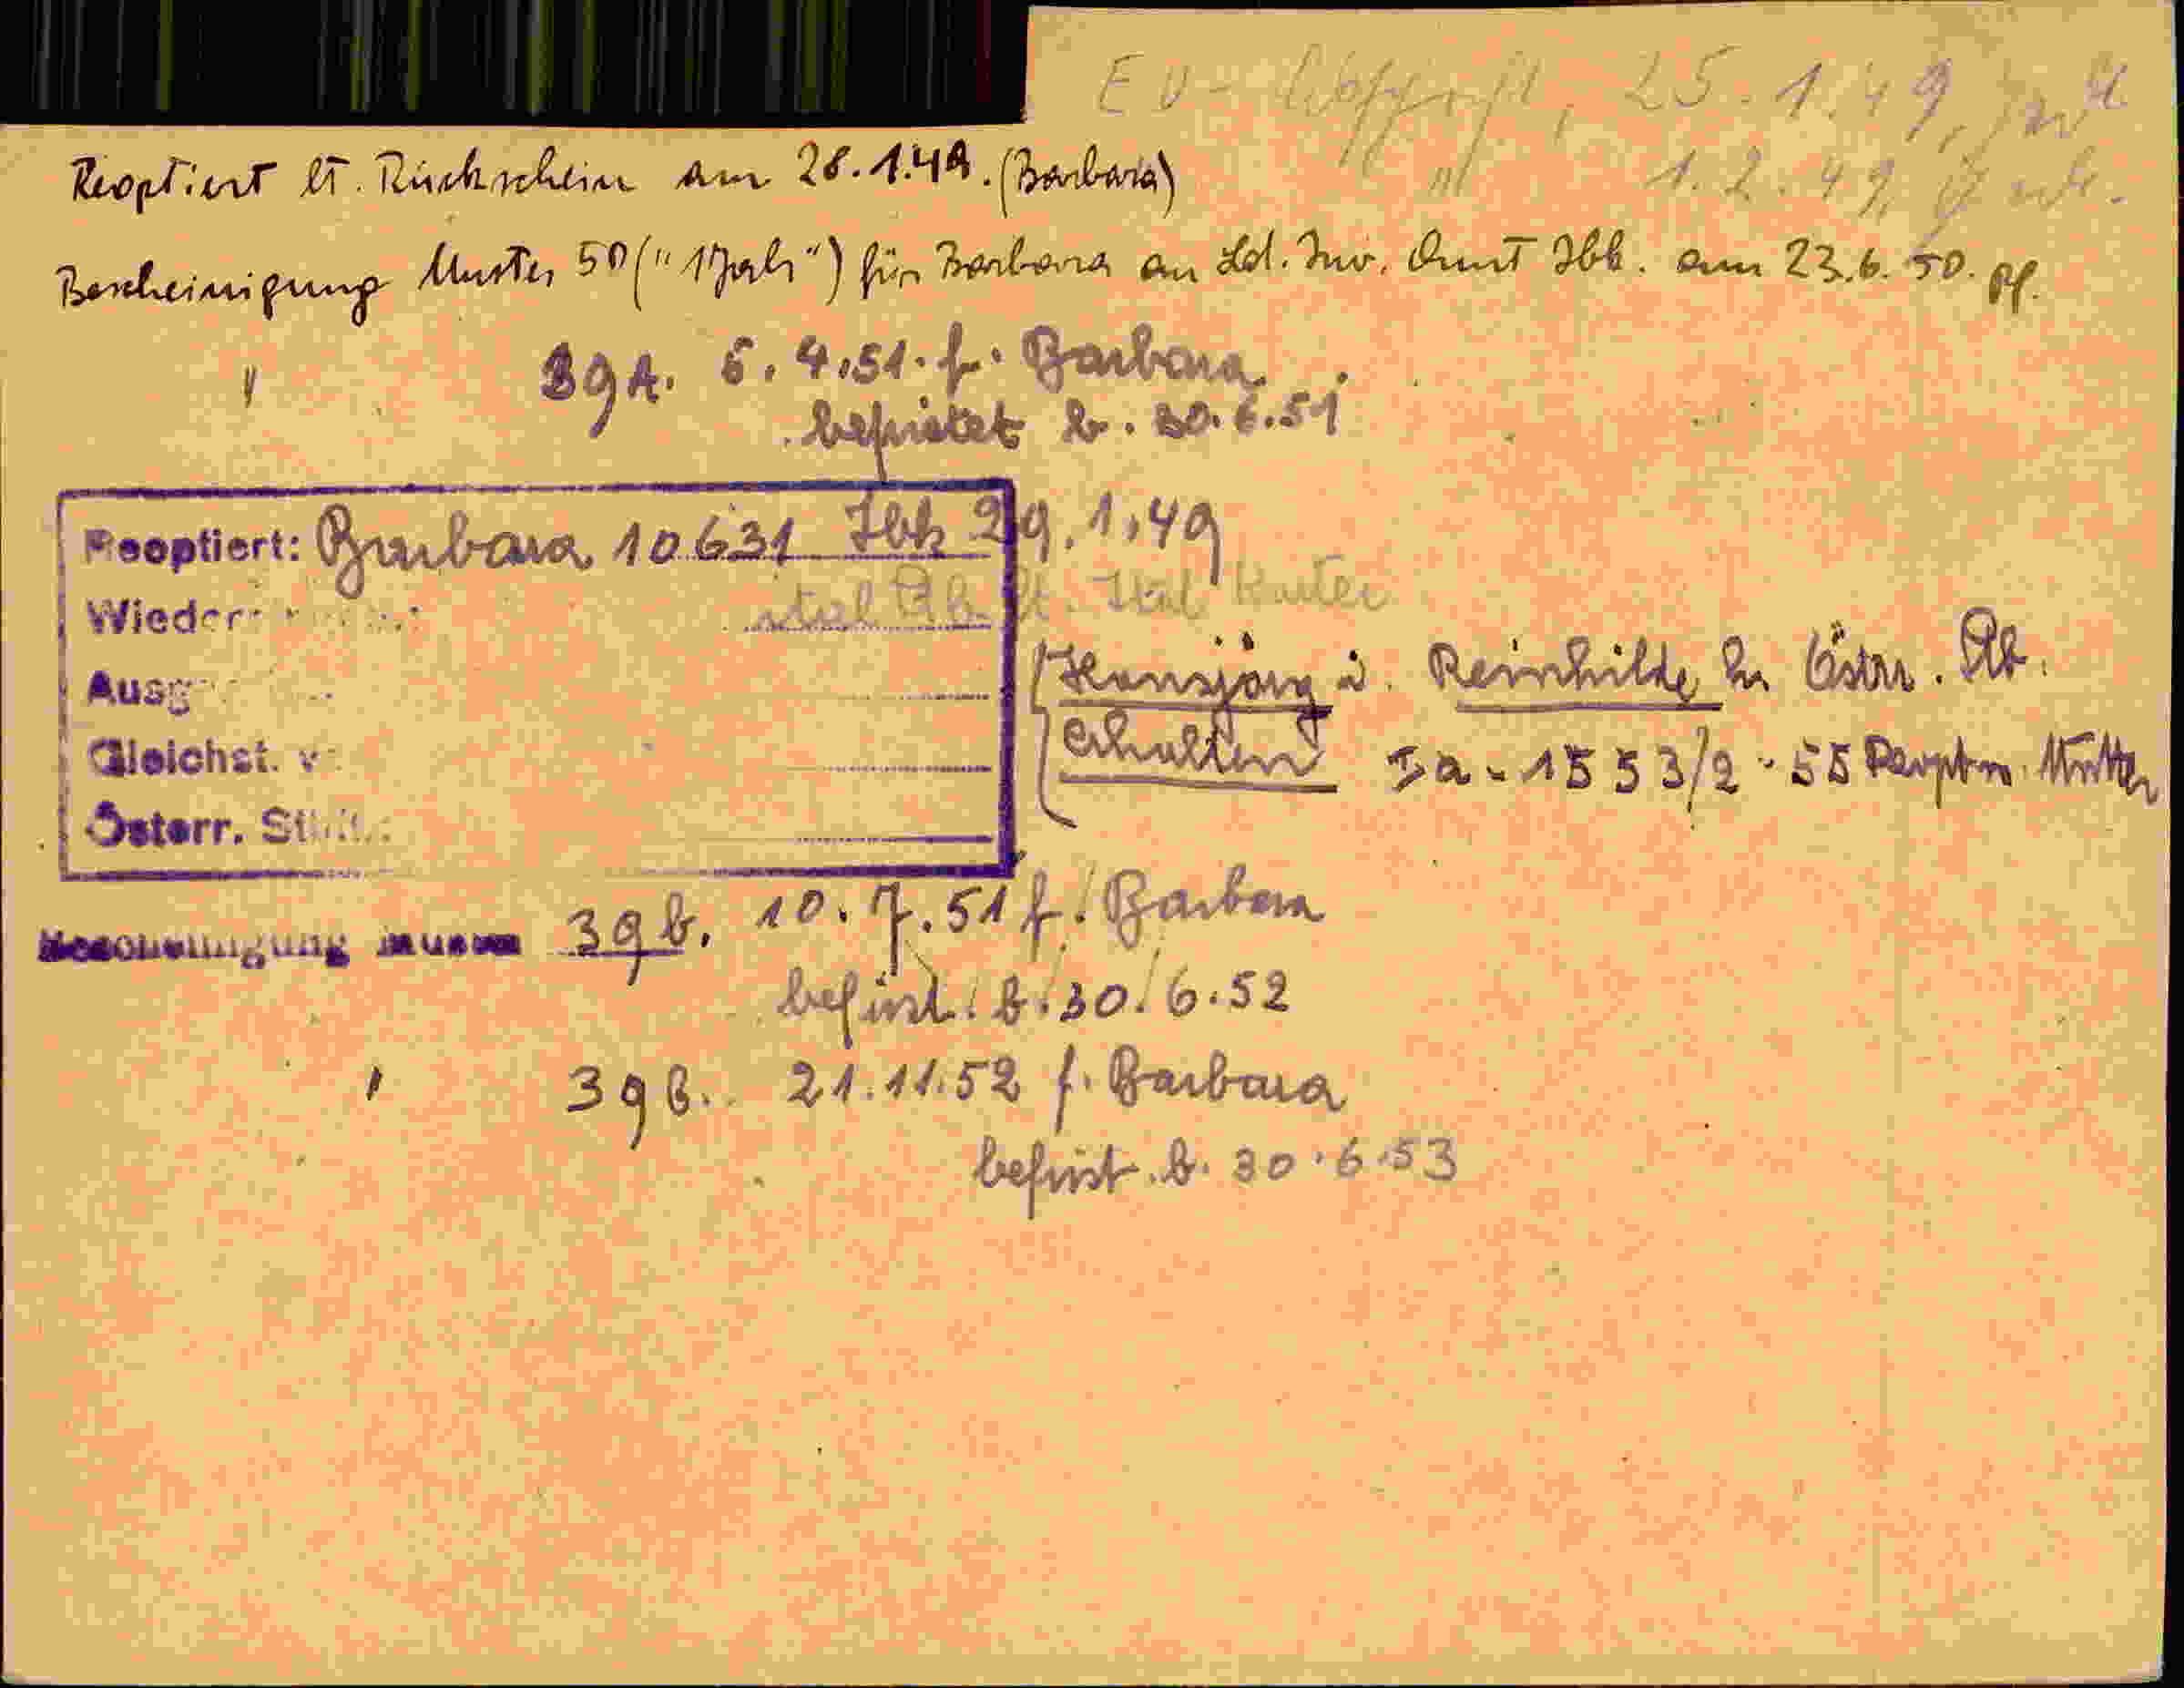 EV- 25.1.49,
" 1.2.49,
Reoptiert lt. Rückschein am 28.1.49. (Barbara)
Bescheinigung Muster 50 ("1 Jahr") für Barbara an Ld. Inv. Amt Ibk. am 23.6.50.
" 39A. 5.4.51. f. Barbara
befristet b. 30.6.51
Reoptiert: Barbara 10631 Ibk 29.1.49
Wieder
ital lt. Ital Kartei
Hansjörg u. Reinhilde Östr.
Ausg
erhalten Ia-1553/2-55 Mutter
Gleichst. v
Österr. St
Bescheinigung Muster 39b. 10.7.51 f. Barbara
befrist. b. 30.6.52
" 39b. 21.11.52 f. Barbara
befrist. b. 30.6.53